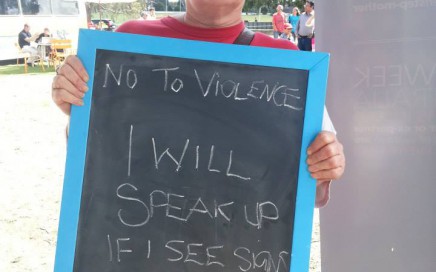 NO TO VIOLENCE
I WILL
SPEAK UP
IF I SEE SIGNS
WEEK